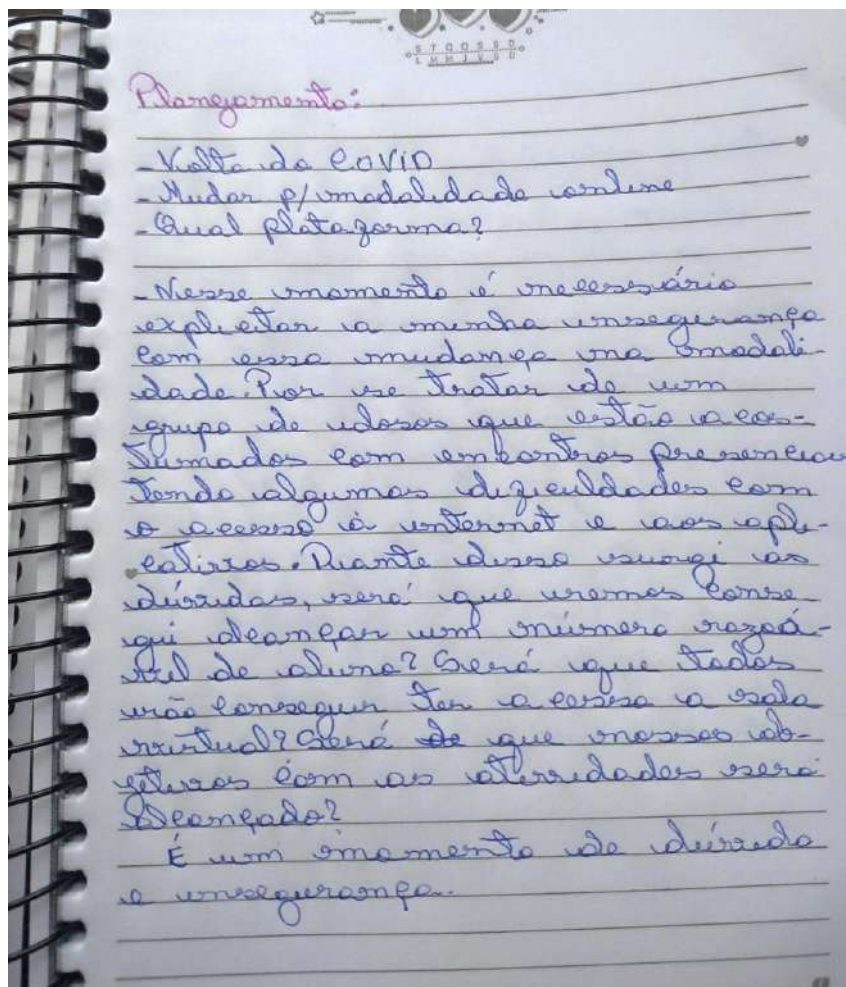 S T Q Q S S D
L M M J V S D
Planejamento:
- Volta da COVID
- Mudar p/ modalidade online
- Qual plataforma?
- Nesse momento é necessário
explicitar a minha insegurança
com essa mudança na modali-
dade. Por se tratar de um
grupo de idosos que estão acos-
tumados com encontros presenciais
tendo algumas dificuldades com
o acesso à internet e aos apli-
cativos. Diante disso surgi as
dúvidas, será que iremos conse
gui alcançar um número razoá-
vel de aluno? Será que todos
irão conseguir ter acesso a sala
virtual? Será de que nossos ob-
jetivos com as atividades será
alcançado?
É um momento de dúvida
e insegurança...